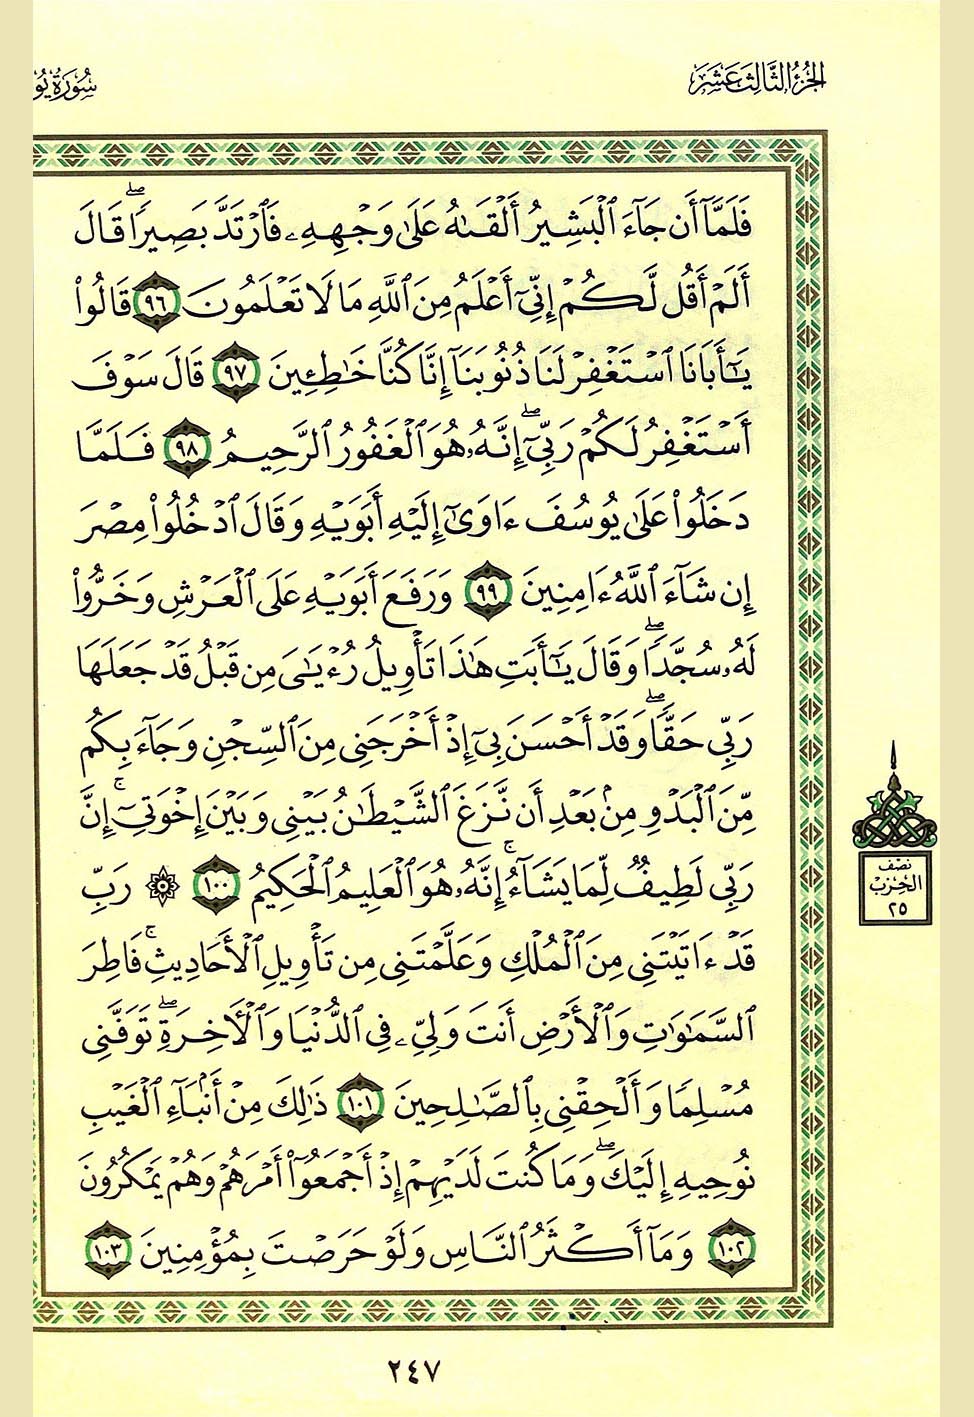 الجزء الثالث عشر
سورة يو
فَلَمَّآ أَن جَآءَ ٱلْبَشِيرُ أَلْقَىٰهُ عَلَىٰ وَجْهِهِۦ فَٱرْتَدَّ بَصِيرًا ۖ قَالَ
أَلَمْ أَقُل لَّكُمْ إِنِّىٓ أَعْلَمُ مِنَ ٱللَّهِ مَا لَا تَعْلَمُونَ ٩٦ قَالُوا۟
يَـٰٓأَبَانَا ٱسْتَغْفِرْ لَنَا ذُنُوبَنَآ إِنَّا كُنَّا خَـٰطِـِٔينَ ٩٧ قَالَ سَوْفَ
أَسْتَغْفِرُ لَكُمْ رَبِّىٓ ۖ إِنَّهُۥ هُوَ ٱلْغَفُورُ ٱلرَّحِيمُ ٩٨ فَلَمَّا
دَخَلُوا۟ عَلَىٰ يُوسُفَ ءَاوَىٰٓ إِلَيْهِ أَبَوَيْهِ وَقَالَ ٱدْخُلُوا۟ مِصْرَ
إِن شَآءَ ٱللَّهُ ءَامِنِينَ ٩٩ وَرَفَعَ أَبَوَيْهِ عَلَى ٱلْعَرْشِ وَخَرُّوا۟
لَهُۥ سُجَّدًا ۖ وَقَالَ يَـٰٓأَبَتِ هَـٰذَا تَأْوِيلُ رُءْيَـٰىَ مِن قَبْلُ قَدْ جَعَلَهَا
رَبِّى حَقًّا ۖ وَقَدْ أَحْسَنَ بِىٓ إِذْ أَخْرَجَنِى مِنَ ٱلسِّجْنِ وَجَآءَ بِكُم
مِّنَ ٱلْبَدْوِ مِنۢ بَعْدِ أَن نَّزَغَ ٱلشَّيْطَـٰنُ بَيْنِى وَبَيْنَ إِخْوَتِىٓ ۚ إِنَّ
رَبِّى لَطِيفٌ لِّمَا يَشَآءُ ۚ إِنَّهُۥ هُوَ ٱلْعَلِيمُ ٱلْحَكِيمُ ١٠٠ ۞ رَبِّ
قَدْ ءَاتَيْتَنِى مِنَ ٱلْمُلْكِ وَعَلَّمْتَنِى مِن تَأْوِيلِ ٱلْأَحَادِيثِ ۚ فَاطِرَ
ٱلسَّمَـٰوَٰتِ وَٱلْأَرْضِ أَنتَ وَلِىِّۦ فِى ٱلدُّنْيَا وَٱلْـَٔاخِرَةِ ۖ تَوَفَّنِى
مُسْلِمًا وَأَلْحِقْنِى بِٱلصَّـٰلِحِينَ ١٠١ ذَٰلِكَ مِنْ أَنۢبَآءِ ٱلْغَيْبِ
نُوحِيهِ إِلَيْكَ ۖ وَمَا كُنتَ لَدَيْهِمْ إِذْ أَجْمَعُوٓا۟ أَمْرَهُمْ وَهُمْ يَمْكُرُونَ
١٠٢ وَمَآ أَكْثَرُ ٱلنَّاسِ وَلَوْ حَرَصْتَ بِمُؤْمِنِينَ ١٠٣
نصف
الحزب
٢٥
٢٤٧